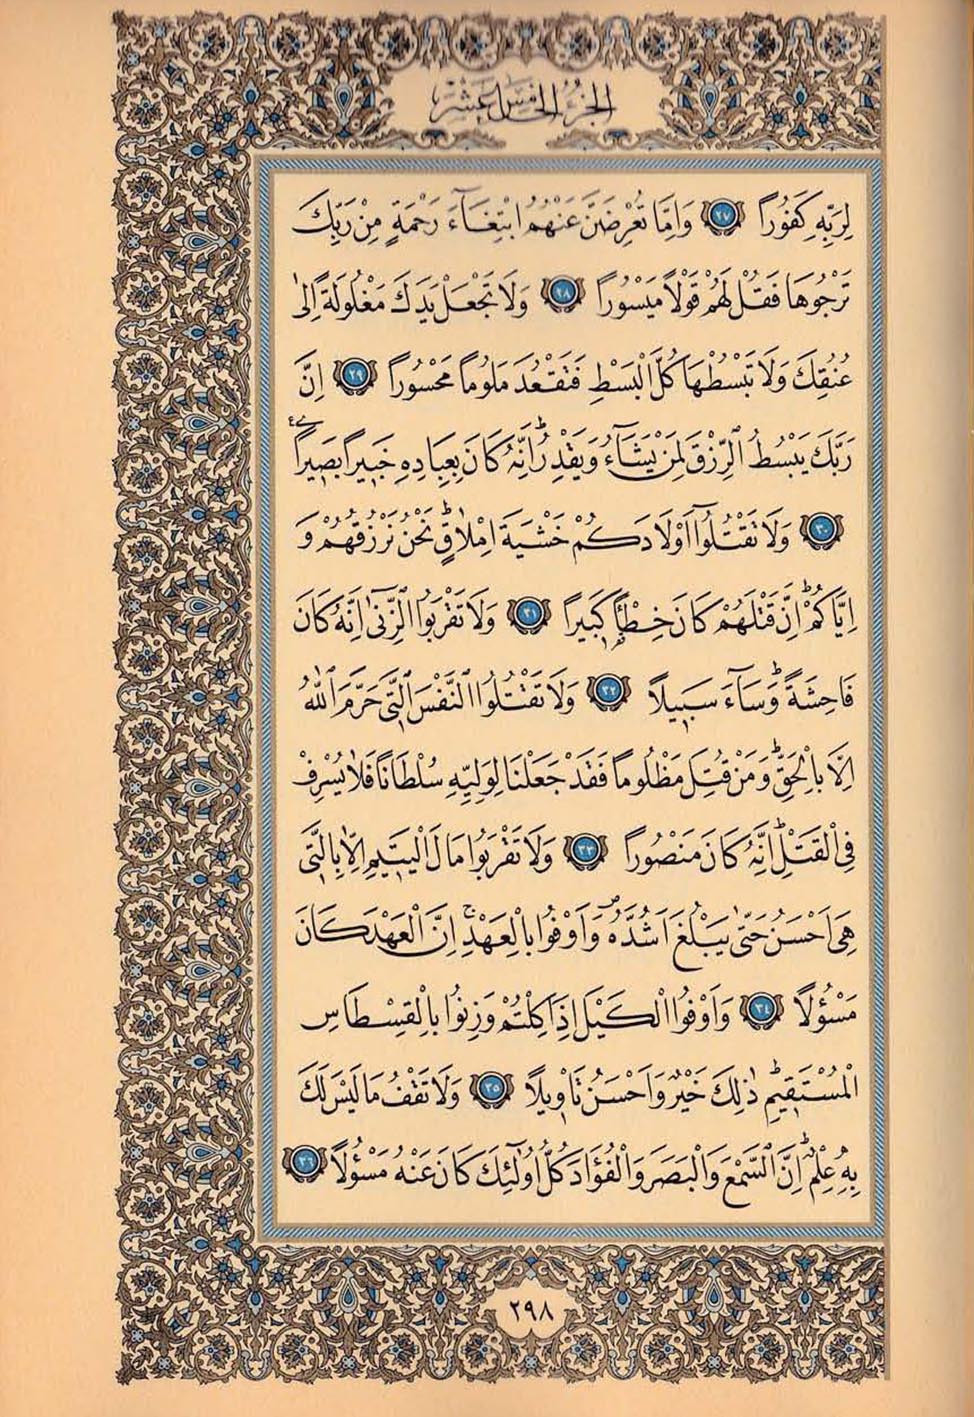 الجزء الخامس عشر
لِرَبِّهِ كَفُورًا ﴿٢٧﴾ وَاِمَّا تُعْرِضَنَّ عَنْهُمُ ابْتِغَٓاءَ رَحْمَةٍ مِنْ رَبِّكَ
تَرْجُوهَا فَقُلْ لَهُمْ قَوْلًا مَيْسُورًا ﴿٢٨﴾ وَلَا تَجْعَلْ يَدَكَ مَغْلُولَةً اِلٰى
عُنُقِكَ وَلَا تَبْسُطْهَا كُلَّ الْبَسْطِ فَتَقْعُدَ مَلُومًا مَحْسُورًا ﴿٢٩﴾ اِنَّ
رَبَّكَ يَبْسُطُ الرِّزْقَ لِمَنْ يَشَٓاءُ وَيَقْدِرُۜ اِنَّهُ كَانَ بِعِبَادِهِ خَبِيرًا بَصِيرًا ع
﴿٣٠﴾ وَلَا تَقْتُلُٓوا اَوْلَادَكُمْ خَشْيَةَ اِمْلَاقٍۜ نَحْنُ نَرْزُقُهُمْ وَ
اِيَّاكُمْۜ اِنَّ قَتْلَهُمْ كَانَ خِطْـًٔا كَبِيرًا ﴿٣١﴾ وَلَا تَقْرَبُوا الزِّنٰٓى اِنَّهُ كَانَ
فَاحِشَةًۜ وَسَٓاءَ سَبِيلًا ﴿٣٢﴾ وَلَا تَقْتُلُوا النَّفْسَ الَّتِي حَرَّمَ اللّٰهُ
اِلَّا بِالْحَقِّۜ وَمَنْ قُتِلَ مَظْلُومًا فَقَدْ جَعَلْنَا لِوَلِيِّهِ سُلْطَانًا فَلَا يُسْرِفْ
فِي الْقَتْلِۜ اِنَّهُ كَانَ مَنْصُورًا ﴿٣٣﴾ وَلَا تَقْرَبُوا مَالَ الْيَتِيمِ اِلَّا بِالَّتِي
هِيَ اَحْسَنُ حَتّٰى يَبْلُغَ اَشُدَّهُۖ وَاَوْفُوا بِالْعَهْدِۚ اِنَّ الْعَهْدَ كَانَ
مَسْؤُلًا ﴿٣٤﴾ وَاَوْفُوا الْكَيْلَ اِذَا كِلْتُمْ وَزِنُوا بِالْقِسْطَاسِ
الْمُسْتَقِيمِۜ ذٰلِكَ خَيْرٌ وَاَحْسَنُ تَأْوِيلًا ﴿٣٥﴾ وَلَا تَقْفُ مَا لَيْسَ لَكَ
بِهِ عِلْمٌۜ اِنَّ السَّمْعَ وَالْبَصَرَ وَالْفُؤَادَ كُلُّ اُولٰٓئِكَ كَانَ عَنْهُ مَسْؤُلًا ﴿٣٦﴾
٢٩٨